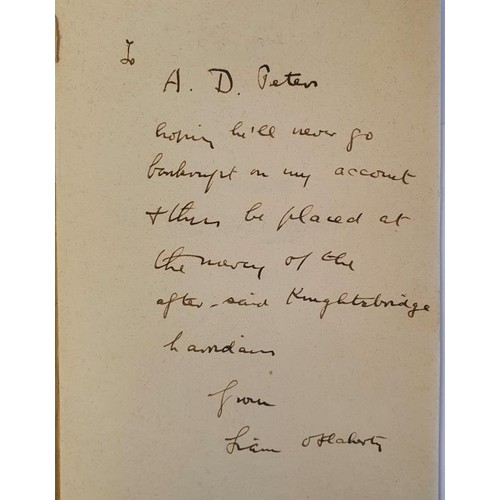 To
A. D. Peters
hoping he'll never go
bankrupt on my account
& thus be placed at
the mercy of the
after-said Knightsbridge
harridans
from
Liam O'Flaherty